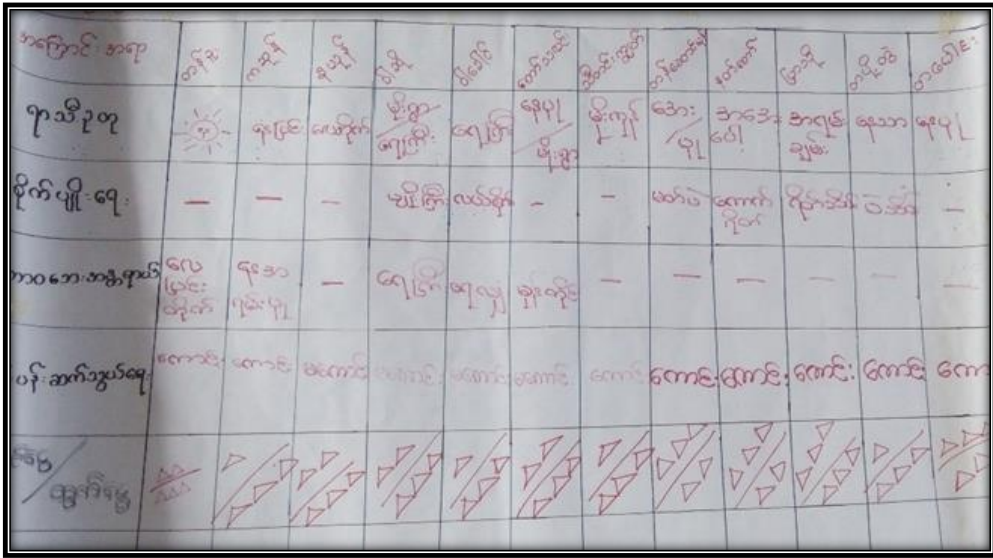 အကြောင်းအရာ တန်ခူး ကဆုန် နယုန် ဝါဆို ဝါခေါင် တော်သလင်း သီတင်းကျွတ် တန်ဆောင်မုန်း နတ်တော် ပြာသို တပို့တွဲ တပေါင်း
ရာသီဥတု နေပြင်း လေတိုက် မိုးရွာ/ရေကြီး ရေကြီး နေပူ/မိုးရွာ မိုးကုန် အေး/ပူ အအေးပေါ် အရမ်းချမ်း နေသာ နေပူ
စိုက်ပျိုးရေး — — — ပျိုးကြဲ လယ်စိုက် - - မတ်ပဲ ကောက်ရိတ် —
ဘာဝဘေးအန္တရာယ် လေပြင်းတိုက် နေအရမ်းပူ — ရေကြီး — — — — — —
ပန်းဆက်သွယ်ရေး ကောင်း ကောင်း မကောင်း မကောင်း မကောင်း မကောင်း ကောင်း ကောင်း ကောင်း ကောင်း ကောင်း ကော
ထွက်ငွေ